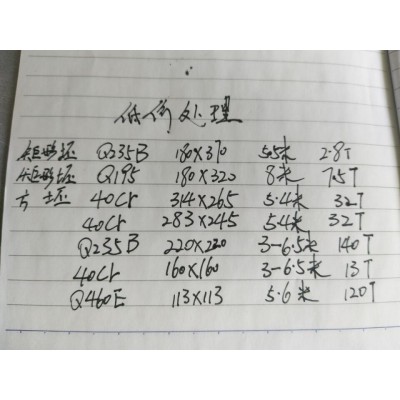 低价处理
矩形坯 Q235B 180X370 5.5米 2.8T
矩形坯 Q195 180X320 8米 7.5T
方坯 40Cr 314X265 5.4米 32T
40Cr 283X245 5.4米 32T
Q235B 220X220 3-6.5米 140T
40Cr 160X160 3-6.5米 13T
Q460E 113X113 5.6米 120T